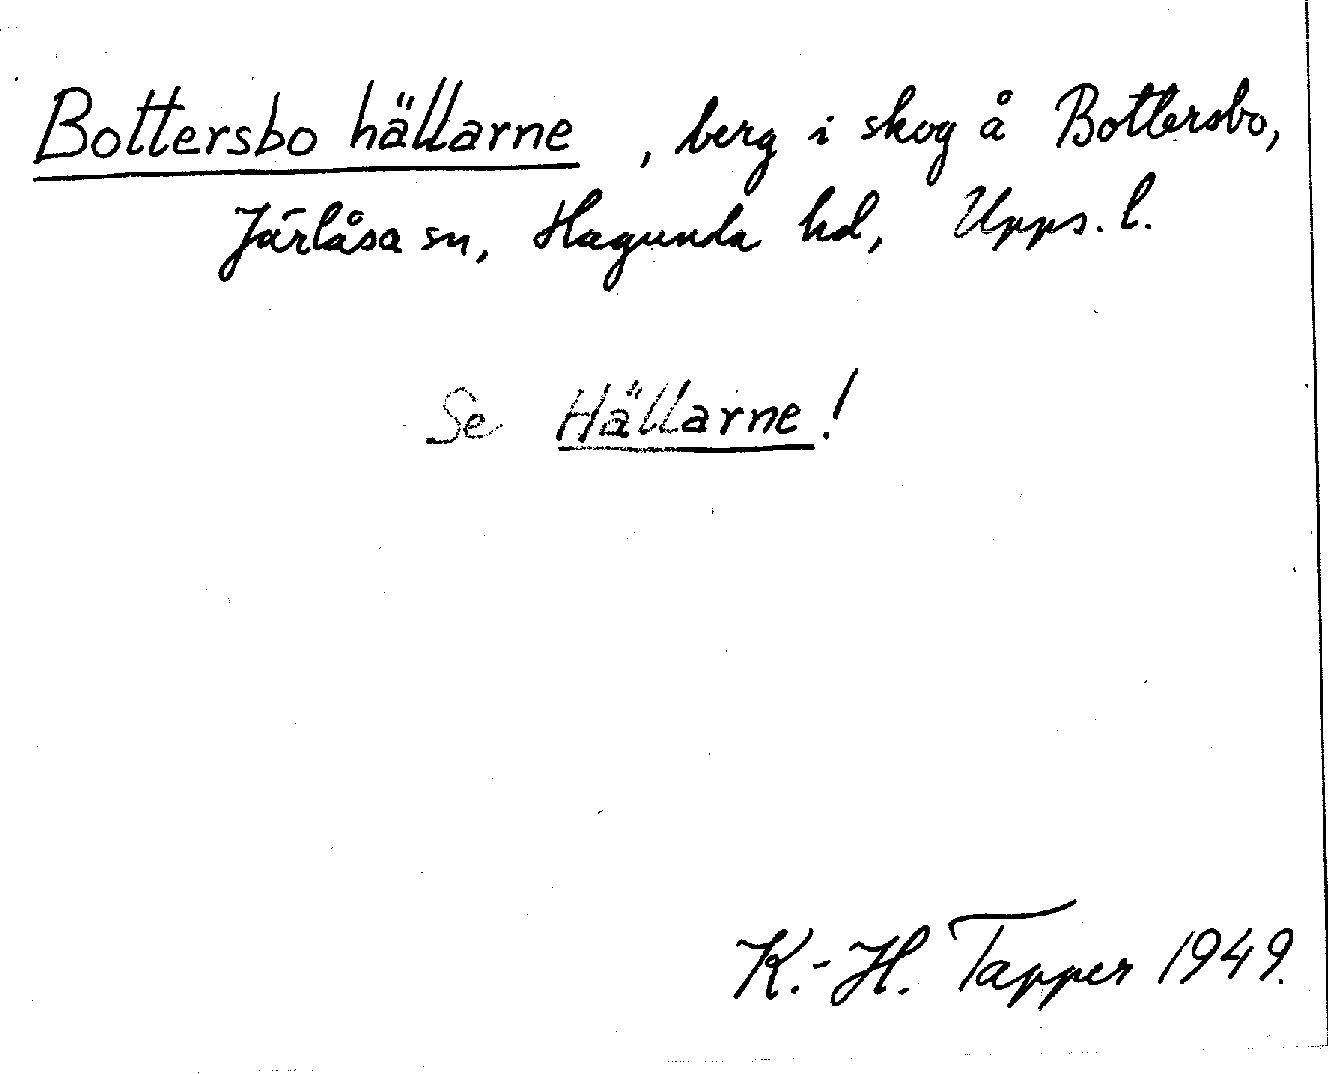 Bottersbo hällarne, berg i skog å Bottersbo,
Järlåsa sn, Hagunda hd, Upps. l.
Se Hällarne!
K.-H. Tapper 1949.